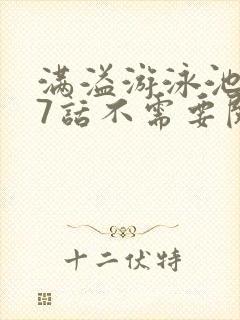 满溢游泳池
7話不需要
十二伏特